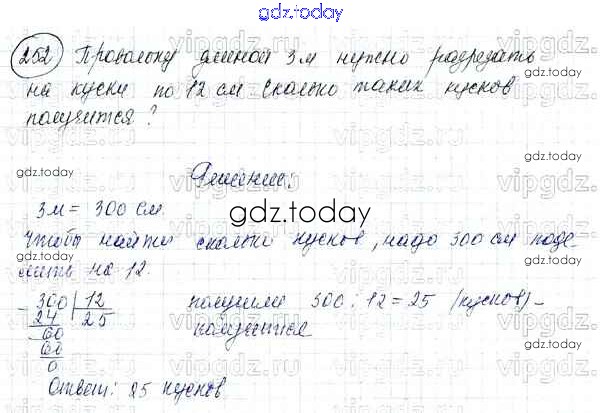 gdz.today
252 Проволоку длиной 3 м нужно разрезать
на куски по 12 см сколько таких кусков
получится?
Решение:
3м = 300 см.
gdz.today
Чтобы найти сколько кусков, надо 300 см поде-
лить на 12.
300 | 12
24 25
60
60
0
получили 300 : 12 = 25 (кусков) –
получится
Ответ: 25 кусков